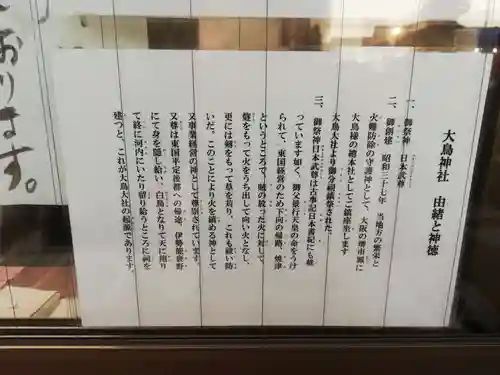 大鳥神社　由緒と神徳
一、御祭神　日本武尊
二、御創建　昭和三十七年　当地方の繁栄と
火難防除の守護神として、大阪の堺市鳳に
大鳥様の總本社として御鎮座します
大鳥大社より御分祠鎮祭された。
三、御祭神日本武尊は古事記日本書紀にも載
っています如く、御父景行天皇の命をうけ
られて、東国経営のため下向の帰路、焼津
というところで、賊の放った火に対して
燧をもって火をうち出して向い火となし、
更には剣をもって草を苅り、これも薙い防
いだ。このことにより火を鎮める神として
又事業経営の神として尊崇されています。
又尊は東国平定後都への帰途、伊勢能褒野
にて身を隠し給い、白鳥となりて天に翔り
て終に河内にいたり留り給うところに祠を
建つと、これが大鳥大社の起源であります。
おります。